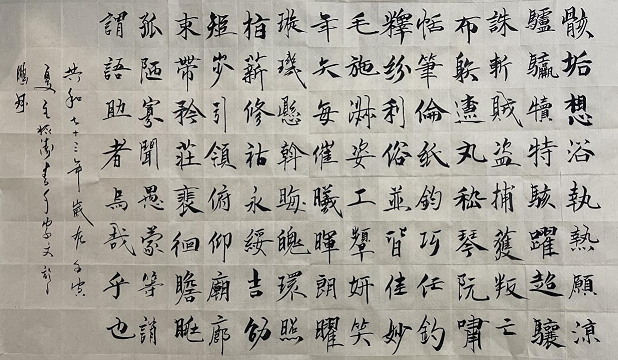 骸垢想浴執熱願涼
驢驘犢特駭躍超驤
誅斬賊盜捕獲叛亡
布射遼丸嵇琴阮嘯
恬筆倫紙鈞巧任釣
釋紛利俗並皆佳妙
毛施淑姿工顰妍笑
年矢每催曦暉朗曜
璇璣懸斡晦魄環照
指薪修祜永綏吉劭
矩步引領俯仰廟廊
束帶矜莊裴徊瞻眺
孤陋寡聞愚蒙等誚
謂語助者焉哉乎也
共和七十三年歲在壬寅
夏至書千字文於
鵬城